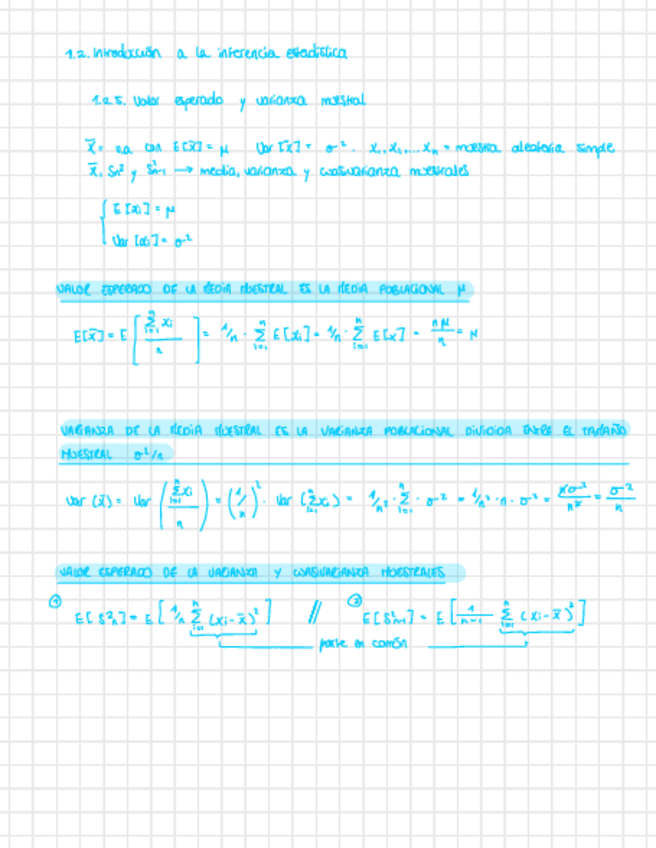 1.2. Introducción a la inferencia estadística
1.2.5. Valor esperado y varianza muestral
X̄ = v.a. con E[X] = μ Var [X] = σ². X₁, X₂, ... Xₙ = muestra aleatoria simple
X̄, Sn² y S²n-1 → media, varianza y cuasivarianza muestrales
{ E [xi] = μ
Var [xi] = σ²
VALOR ESPERADO DE LA MEDIA MUESTRAL ES LA MEDIA POBLACIONAL μ
E[x̄] = E [ Σⁿᵢ₌₁ xi / n ] = 1/n · Σⁿᵢ₌₁ E[xi] = 1/n · Σⁿᵢ₌₁ E[x] = nμ/n = μ
VARIANZA DE LA MEDIA MUESTRAL ES LA VARIANZA POBLACIONAL DIVIDIDA ENTRE EL TAMAÑO
MUESTRAL σ²/n
Var (x̄) = Var ( Σⁿᵢ₌₁ xi / n ) = (1/n)² · Var (Σⁿᵢ₌₁ xi) = 1/n² · Σⁿᵢ₌₁ · σ² = 1/n² · n · σ² = nσ²/n² = σ²/n
VALOR ESPERADO DE LA VARIANZA Y CUASIVARIANZA MUESTRALES
① E[S²n] = E [ 1/n Σⁿᵢ₌₁ (xi - x̄)² ] // ② E[S²n-1] = E [ 1/n-1 Σⁿᵢ₌₁ (xi - x̄)² ]
parte en común